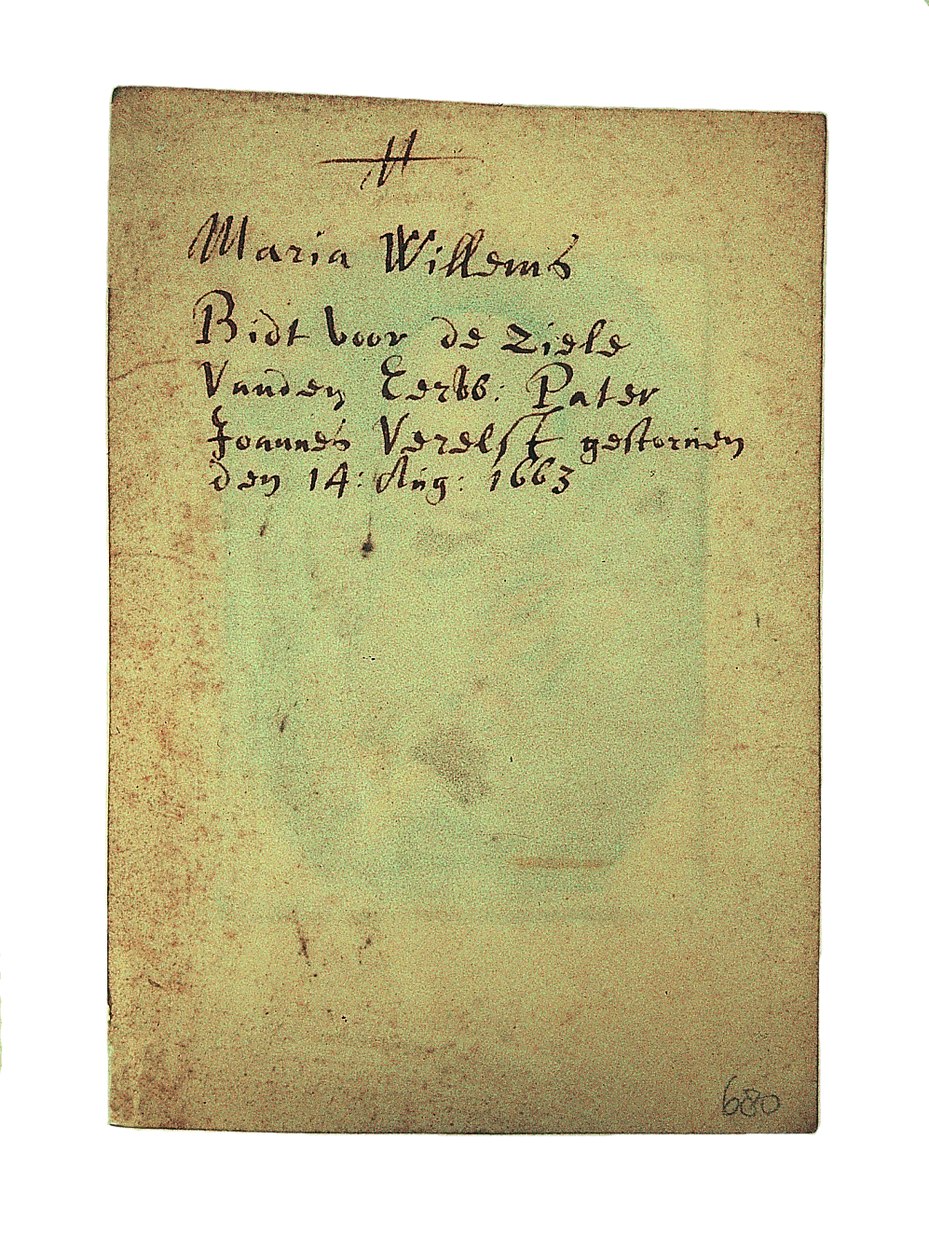 Maria Willems
Bidt voor de ziele
Vanden Eerw: Pater
Joannes Verelst gestorven
den 14: Aug: 1663
680